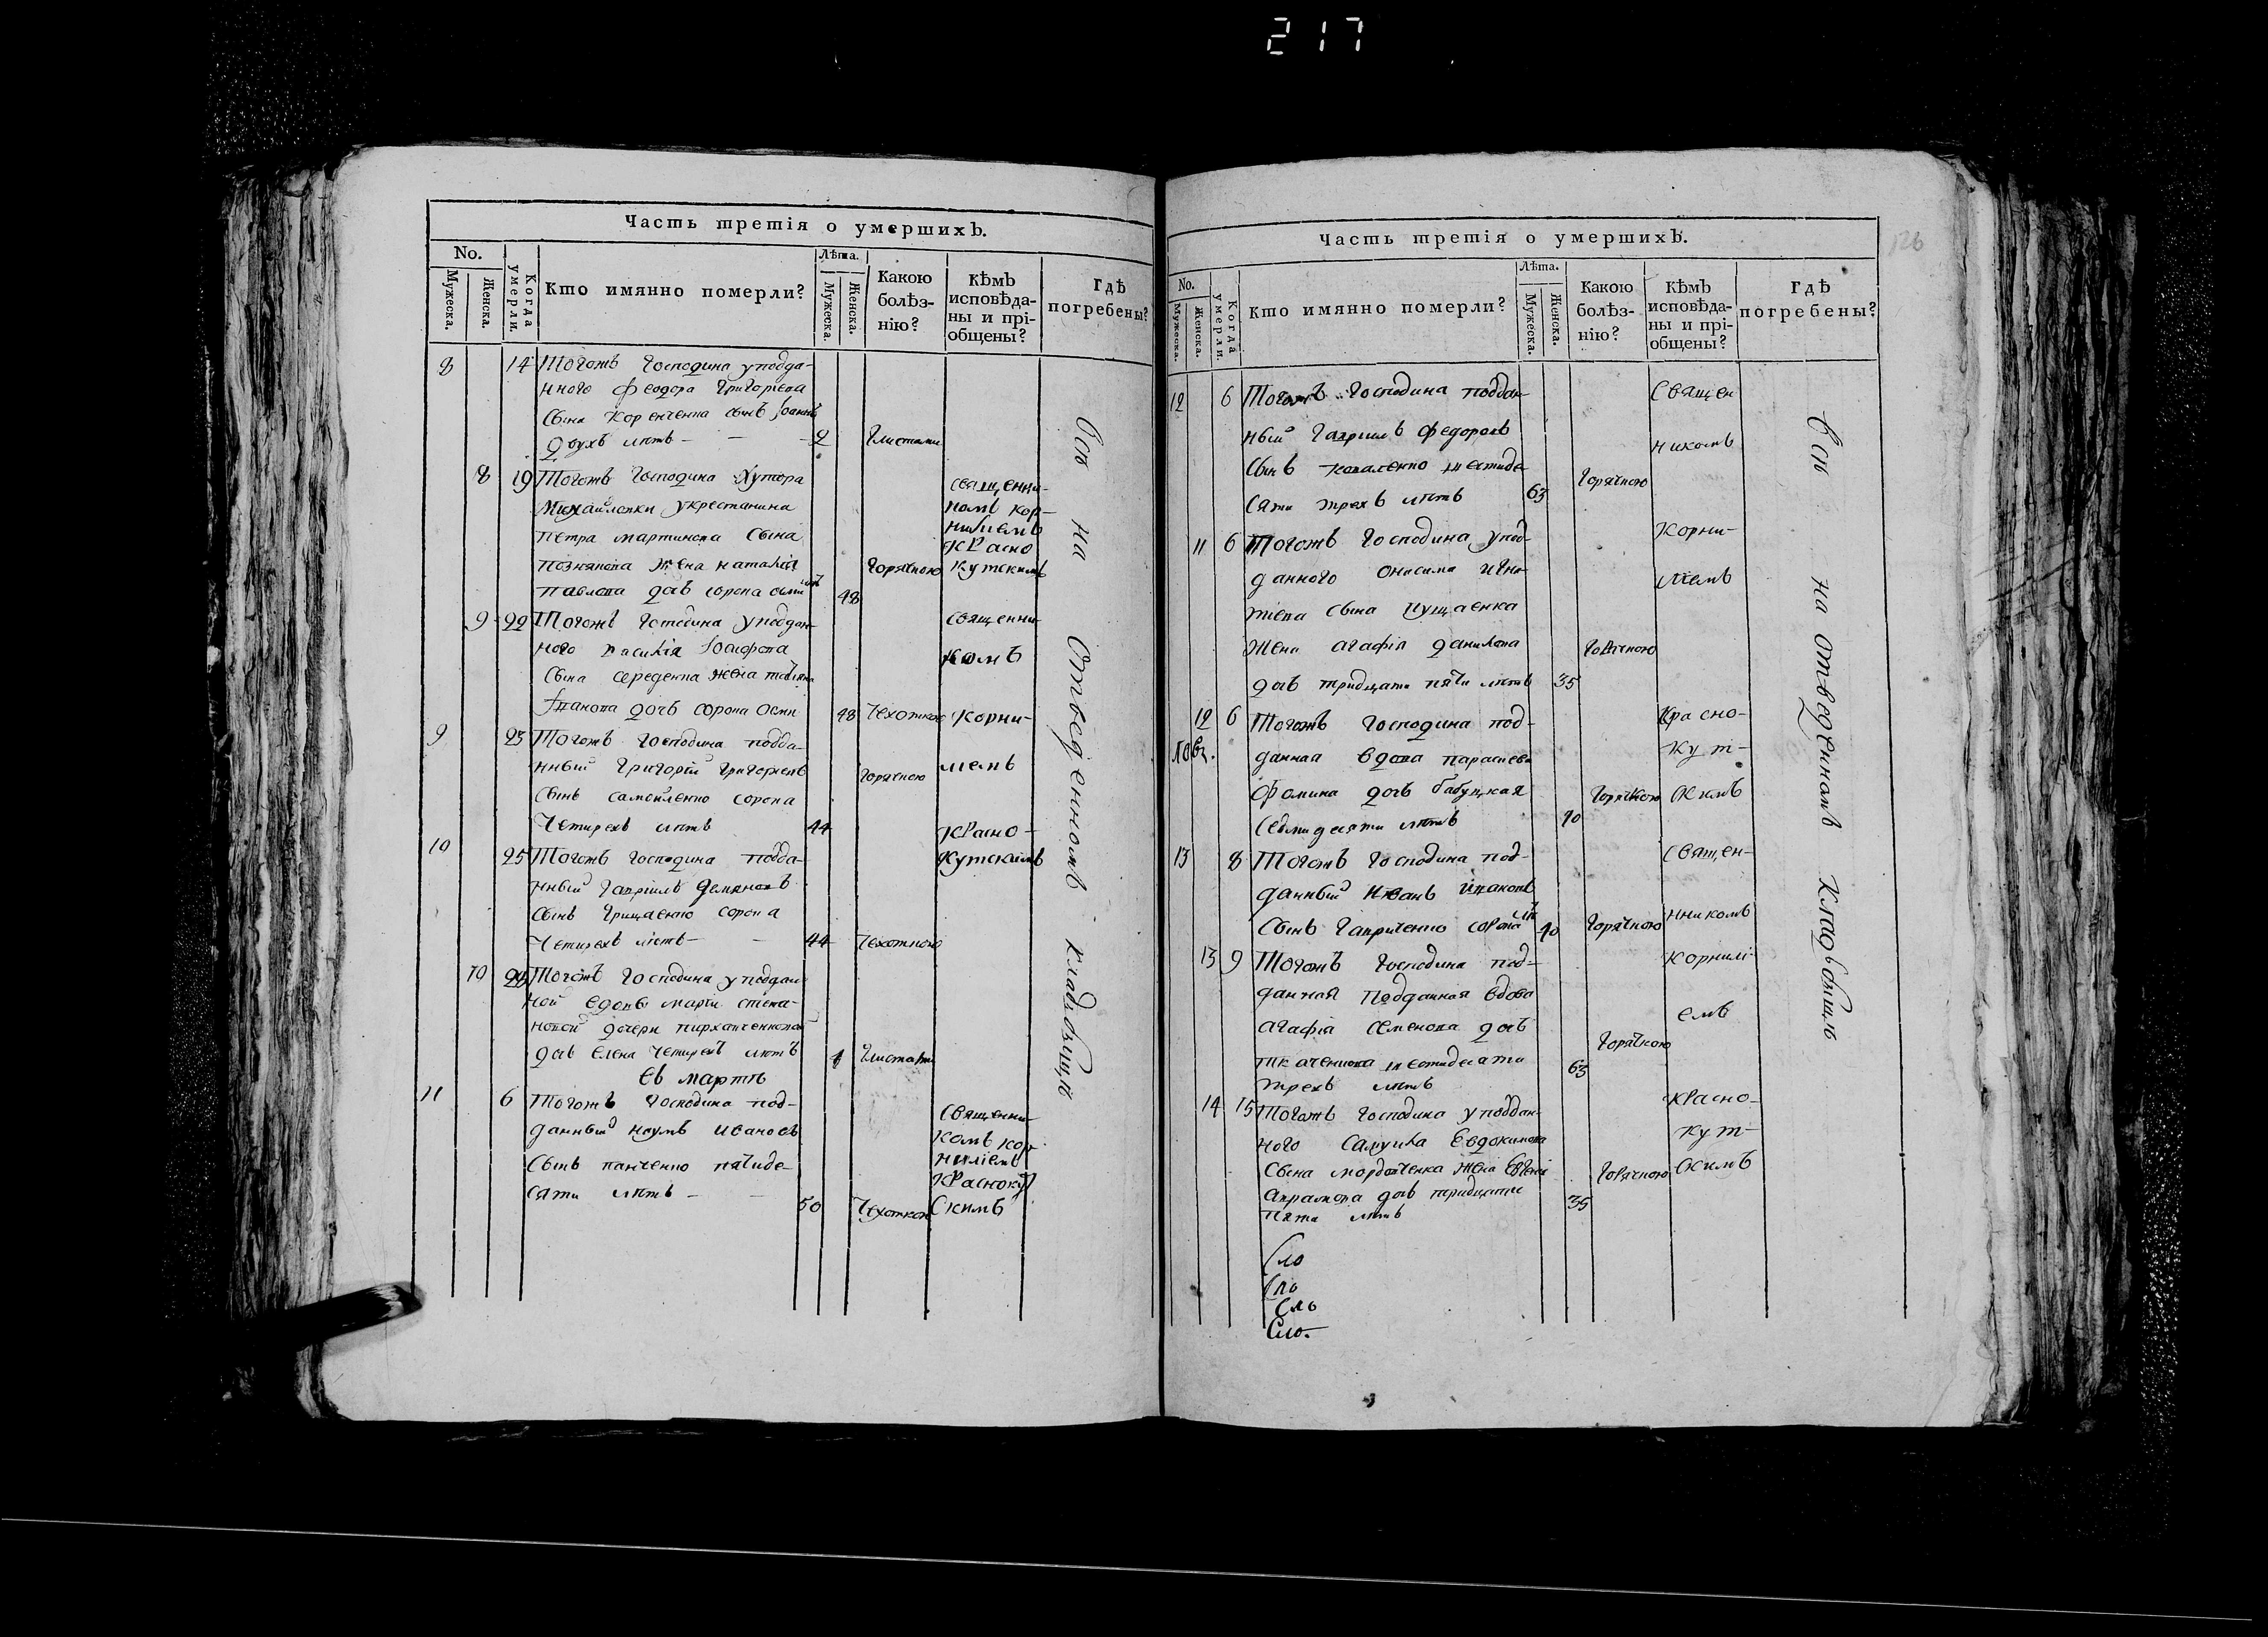 217
Часть третія о умершихъ.
No.
Мужеска.
Женска.
Когда умерли.
Кто имянно померли?
Лѣта.
Мужеска.
Женска.
Какою болѣз-
нію?
кѣмъ
исповѣда-
ны и прі-
общены?
гдѣ
погребены?
8 14 Тогожъ Господина уподда-
нного Феодора Григорьева
сына Коренченка сынъ Іоаннъ
двухъ лѣтъ — — 2 Глистами
8 19 Тогожъ Господина Хутора
Михайловки укрестянина
Петра Мартинова сына
Познякова жена наталія
Павлова дочь сорока осми лѣтъ 48 Горячкою
Священни-
комъ Кор-
ниліемъ
Красно
кутскимъ
9 22 Тогожъ Господина уподдан-
ного Василія Іосифова
сына Середенка жена татіяна
дочь сорока осми 48 Чехоткою
9 23 Тогожъ Господина подда-
нный Григорій Григорьевъ
сынъ Самойленко сорока
четирехъ лѣтъ 44 Горячкою
10 25 Тогожъ Господина подда-
нный Гавріилъ Демяновъ
сынъ Грищенко сорока
четирехъ лѣтъ — — 44 Чехоткою
Священни-
комъ
Корни-
ліемъ
Красно-
кутскимъ
10 Тогожъ Господина уподдан-
ной вдовы марѳи степа-
новой дочери
дочь Елена четирехъ лѣтъ Глистами
Въ мартѣ
11 6 Тогожъ Господина под-
данный наумъ Ивановъ
сынъ панченко пятиде-
сяти лѣтъ — — 50 Чехоткою
Священни-
комъ Кор-
ниліемъ
Краснокут
скимъ
Всѣ на отведенномъ кладбищѣ
126
Часть третія о умершихъ.
No.
Мужеска.
Женска.
Когда умерли.
Кто имянно померли?
Лѣта.
Мужеска.
Женска.
Какою
болѣз-
нію?
кѣмъ
исповѣда-
ны и прі-
общены?
гдѣ
погребены?
12 6 Тогожъ Господина поддан-
ный Гавріилъ Федоровъ
сынъ Коваленко шестиде-
сяти трехъ лѣтъ 63 Горячкою
11 6 Тогожъ Господина упод-
данного Онисима Игна-
тіева сына
жена агафія данилова
дочь тридцати пяти лѣтъ 35 Горячкою
12 6 Тогожъ Господина под-
данная вдова параскева
Фомина дочь бабуцкая
седмидесяти лѣтъ 70 Горячкою
Священ
никомъ
Корни-
ліемъ
Красно-
кут-
скимъ
13 8 Тогожъ Господина под-
данный Иванъ
сынъ Гавриченко сорока лѣтъ 40 Горячкою
13 9 Тогожъ Господина под-
данная Подданная вдова
агафія Семенова дочь
ткаченкова шестидесяти
трехъ лѣтъ 63 Горячкою
14 15 Тогожъ Господина уподдан-
ного Самуила Евдокимова
сына жена Евгенія
аврамова дочь тридцати
пяти лѣтъ 35 Горячкою
Священ-
никомъ
Корнилі-
емъ
Красно-
кут-
скимъ
Всѣ на отведенномъ кладбищѣ
Сло
Сло
Сло
Сло.